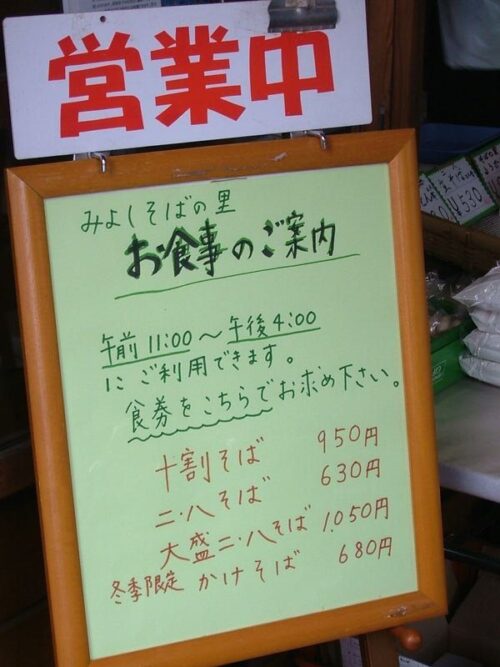 営業中
みよしそばの里
お食事のご案内
午前11:00～午後4:00
にご利用できます。
食券をこちらでお求め下さい。
十割そば 950円
二・八そば 630円
大盛二・八そば 1.050円
冬季限定 かけそば 680円
¥530